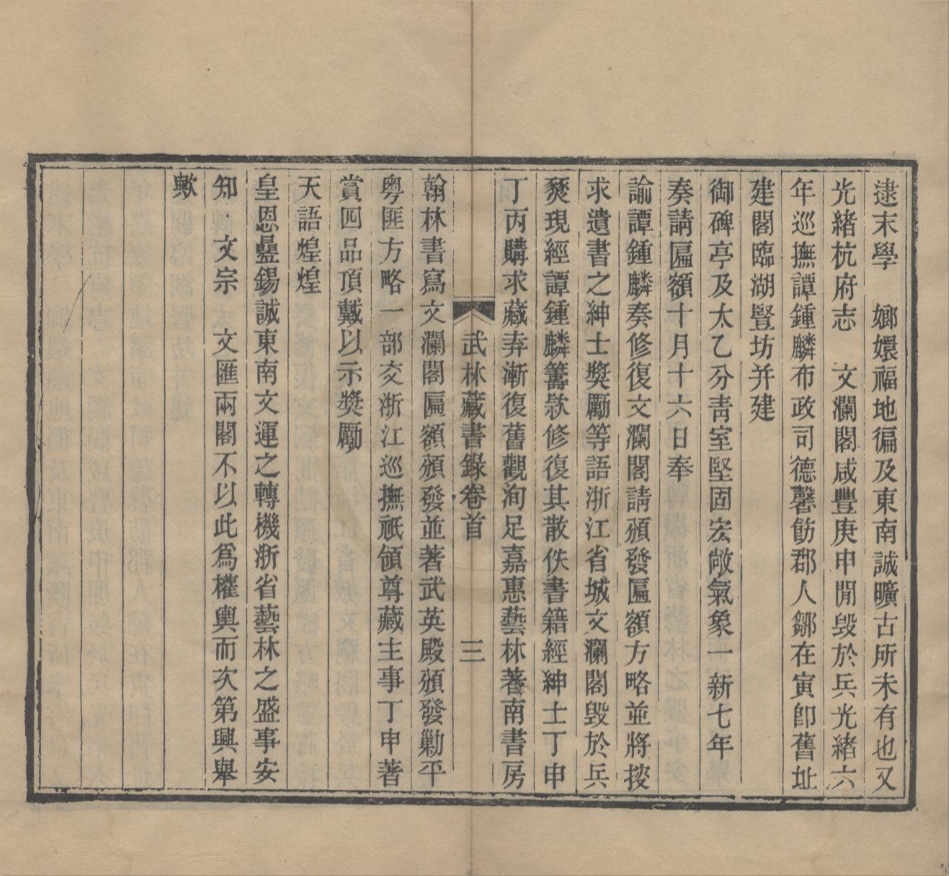 逮末學　嫏嬛福地徧及東南誠曠古所未有也又
光緒杭府志　文瀾閣咸豐庚申閒毀於兵光緒六
年巡撫譚鍾麟布政司德馨飭郡人鄒在寅卽舊址
建閣臨湖豎坊并建
御碑亭及太乙分青室堅固宏敞氣象一新七年
奏請匾額十月十六日奉
諭譚鍾麟奏修復文瀾閣請頒發匾額方略並將按
求遺書之紳士獎勵等語浙江省城文瀾閣毀於兵
燹現經譚鍾麟籌款修復其散佚書籍經紳士丁申
丁丙購求藏弆漸復舊觀洵足嘉惠藝林著南書房
武林藏書錄卷首　三
翰林書寫文瀾閣匾額頒發並著武英殿頒發勦平
粵匪方略一部交浙江巡撫祇領尊藏主事丁申著
賞四品頂戴以示獎勵
天語煌煌
皇恩疊錫誠東南文運之轉機浙省藝林之盛事安
知　文宗　文匯兩閣不以此爲權輿而次第興舉
歟